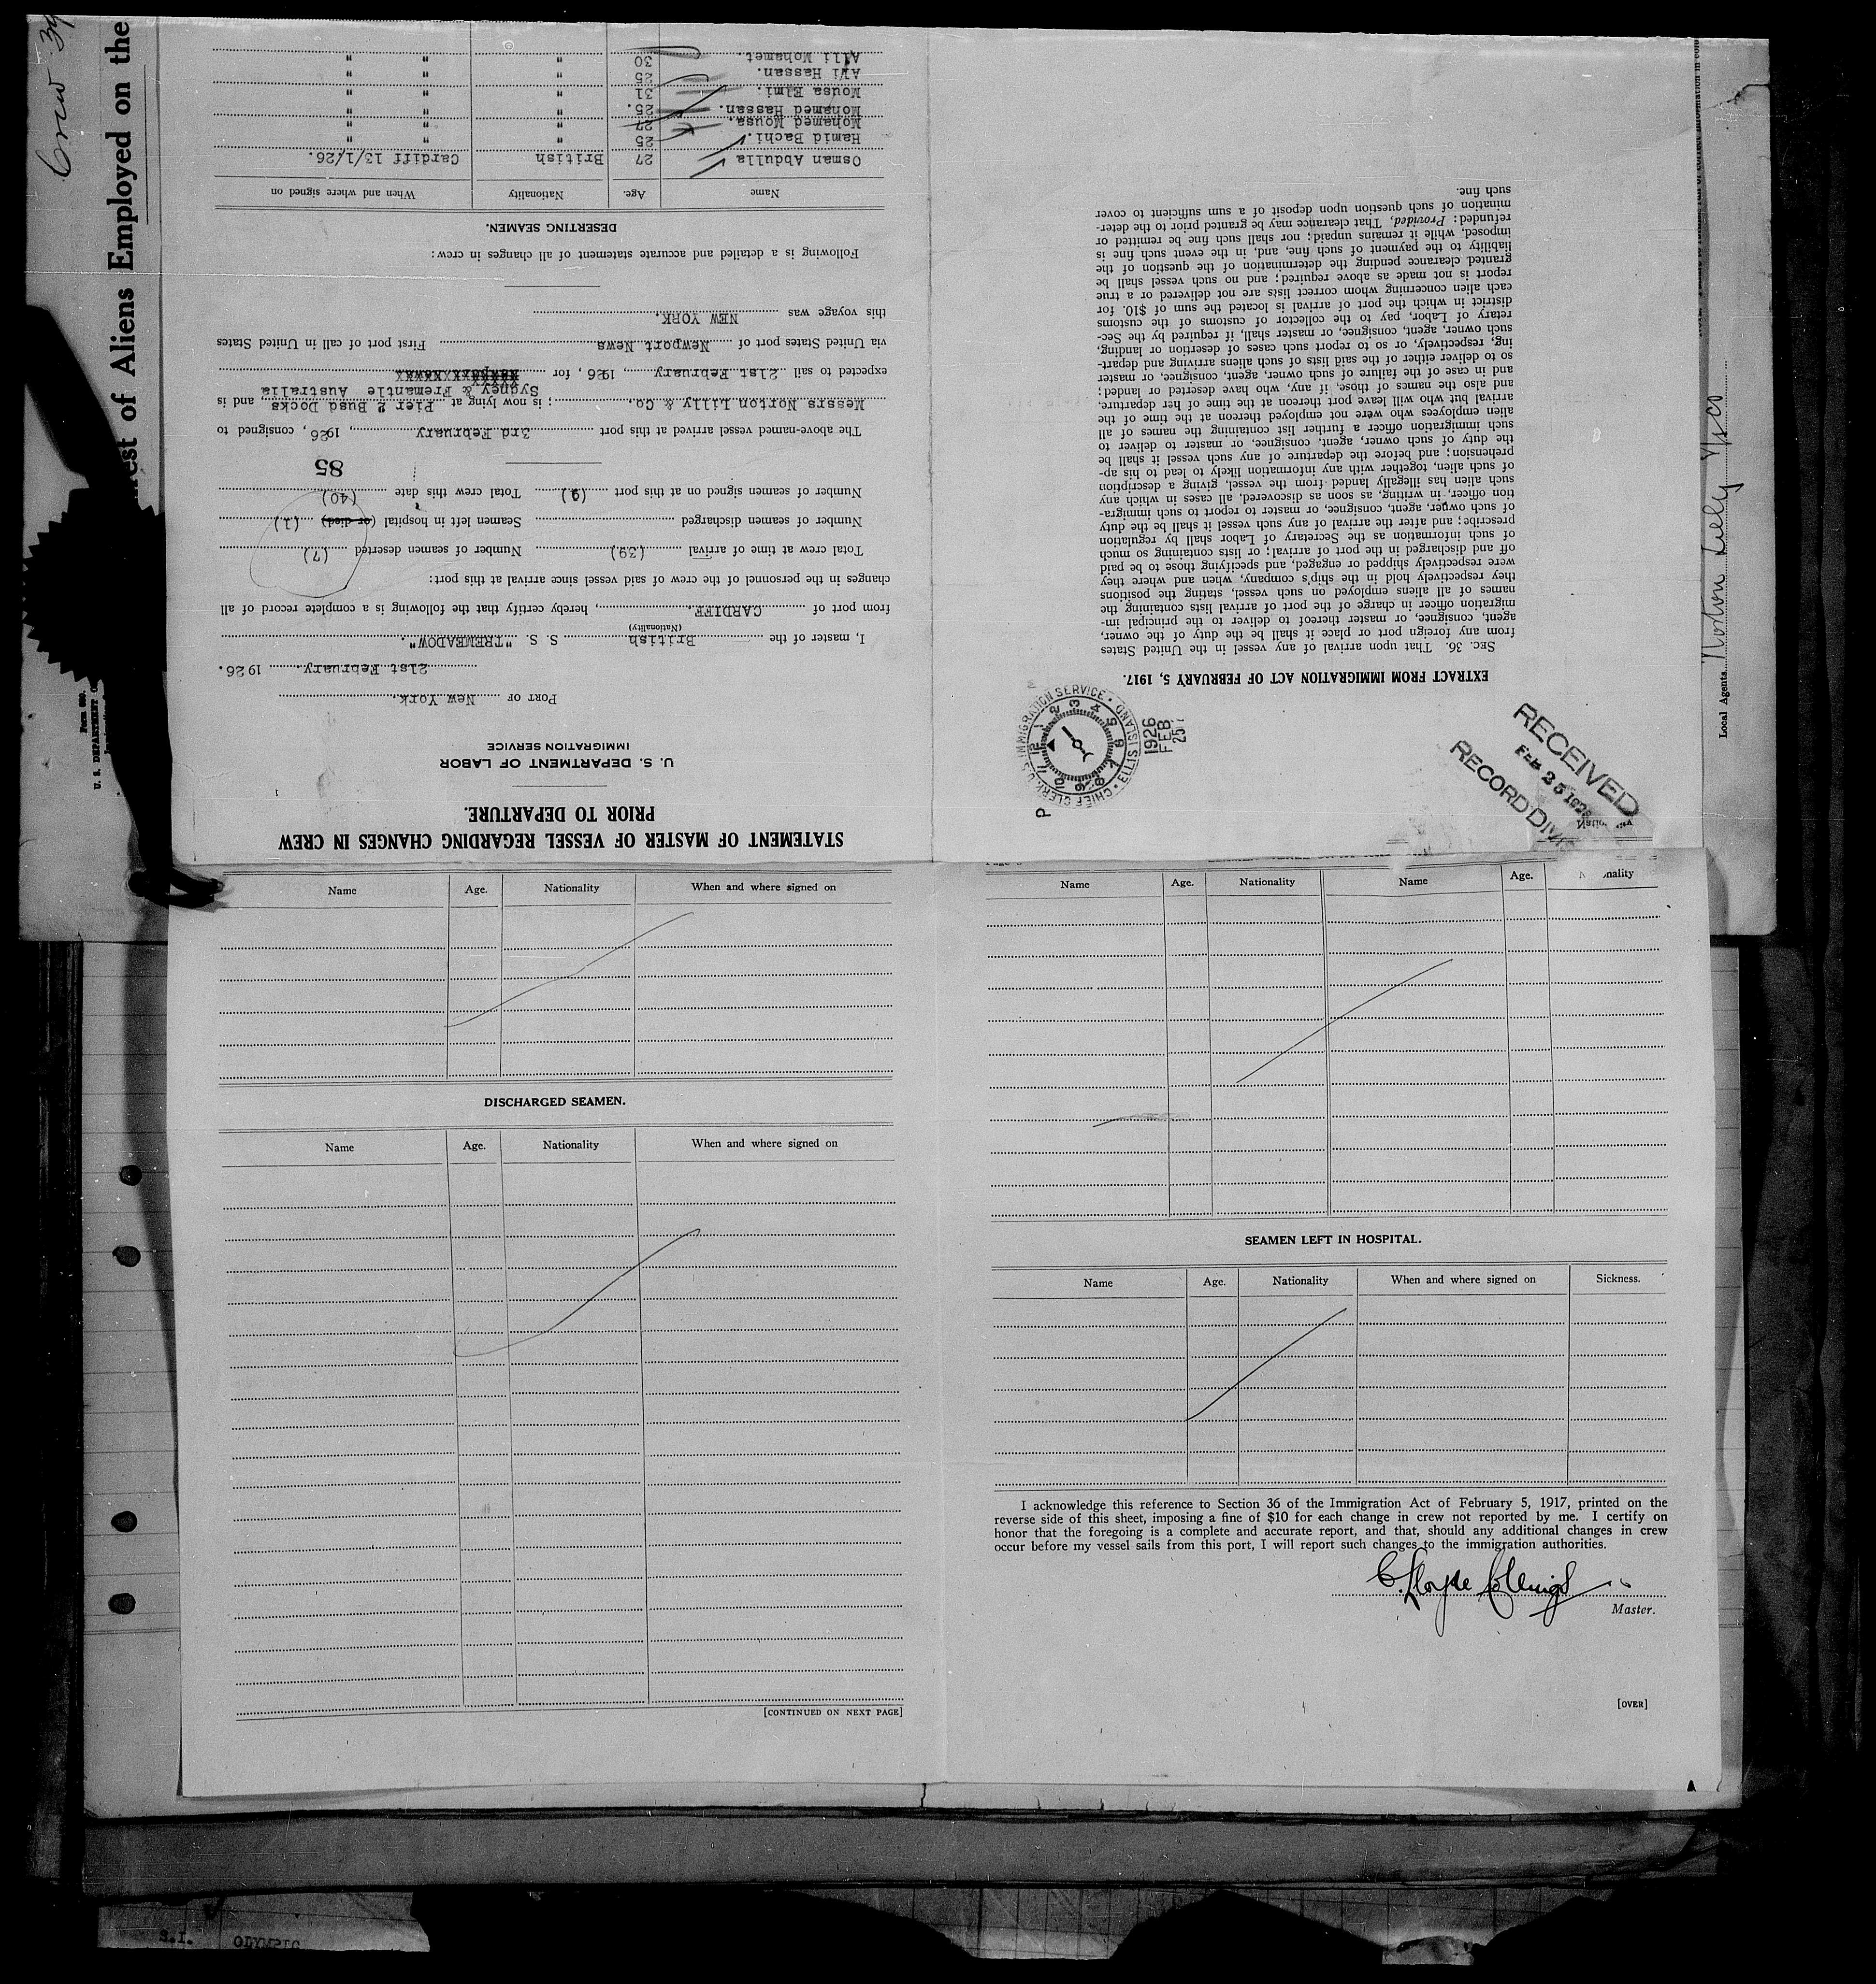 Crew 39
List of Aliens Employed on the
Form 689.
U. S. DEPARTMENT O
STATEMENT OF MASTER OF VESSEL REGARDING CHANGES IN CREW
PRIOR TO DEPARTURE.
U. S. DEPARTMENT OF LABOR
IMMIGRATION SERVICE
PORT OF New York.
21st February. 1926.
I, master of the British S. S. "TREMEADOW".
(Nationality)
from port of CARDIFF., hereby certify that the following is a complete record of all
changes in the personnel of the crew of said vessel since arrival at this port:
Total crew at time of arrival (39) Number of seamen deserted (7)
Number of seamen discharged Seamen left in hospital (or died) (1)
Number of seamen signed on at this port (9) Total crew this date (40)
85
The above-named vessel arrived at this port 3rd February, 1926, consigned to
Messrs Norton Lilly & Co.; is now lying at Pier 2 Bush Docks, and is
Sydney & Fremantle Australia
expected to sail 21st February, 1926, for
via United States port of Newport News First port of call in United States
this voyage was NEW YORK.
Following is a detailed and accurate statement of all changes in crew:
DESERTING SEAMEN.
Name Age. Nationality When and where signed on
Osman Abdulla 27 British Cardiff 13/1/26.
Hamid Bachi. 25 " " "
Mohamed Mousa. 27 " " "
Mohamed Hassan. 25. " " "
Mousa Elmi. 31 " " "
Ali Hassan. 25 " " "
Alli Mohamet. 30 " " "
P
CHIEF CLERK U.S. IMMIGRATION SERVICE · ELLIS ISLAND ·
12 1 2 3 4 5 6 7 8 9 10 11
1926
FEB
25
RECEIVED
FEB 25 1926
RECORD DIVIS
EXTRACT FROM IMMIGRATION ACT OF FEBRUARY 5, 1917.
SEC. 36. That upon arrival of any vessel in the United States
from any foreign port or place it shall be the duty of the owner,
agent, consignee, or master thereof to deliver to the principal im-
migration officer in charge of the port of arrival lists containing the
names of all aliens employed on such vessel, stating the positions
they respectively hold in the ship's company, when and where they
were respectively shipped or engaged, and specifying those to be paid
off and discharged in the port of arrival; or lists containing so much
of such information as the Secretary of Labor shall by regulation
prescribe; and after the arrival of any such vessel it shall be the duty
of such owner, agent, consignee, or master to report to such immigra-
tion officer, in writing, as soon as discovered, all cases in which any
such alien has illegally landed from the vessel, giving a description
of such alien, together with any information likely to lead to his ap-
prehension; and before the departure of any such vessel it shall be
the duty of such owner, agent, consignee, or master to deliver to
such immigration officer a further list containing the names of all
alien employees who were not employed thereon at the time of the
arrival but who will leave port thereon at the time of her departure,
and also the names of those, if any, who have deserted or landed;
and in case of the failure of such owner, agent, consignee, or master
so to deliver either of the said lists of such aliens arriving and depart-
ing, respectively, or so to report such cases of desertion or landing,
such owner, agent, consignee, or master shall, if required by the Sec-
retary of Labor, pay to the collector of customs of the customs
district in which the port of arrival is located the sum of $10. for
each alien concerning whom correct lists are not delivered or a true
report is not made as above required; and no such vessel shall be
granted clearance pending the determination of the question of the
liability to the payment of such fine, and, in the event such fine is
imposed, while it remains unpaid; nor shall such fine be remitted or
refunded: Provided, That clearance may be granted prior to the deter-
mination of such question upon deposit of a sum sufficient to cover
such fine.
Local Agents Norton Lilly & Co
Name Age. Nationality When and where signed on
DISCHARGED SEAMEN.
Name Age. Nationality When and where signed on
[CONTINUED ON NEXT PAGE]
Name Age. Nationality Name Age. Nationality
SEAMEN LEFT IN HOSPITAL.
Name Age. Nationality When and where signed on Sickness.
I acknowledge this reference to Section 36 of the Immigration Act of February 5, 1917, printed on the
reverse side of this sheet, imposing a fine of $10 for each change in crew not reported by me. I certify on
honor that the foregoing is a complete and accurate report, and that, should any additional changes in crew
occur before my vessel sails from this port, I will report such changes to the immigration authorities.
Master.
[OVER]
S.I. OLYMPIC